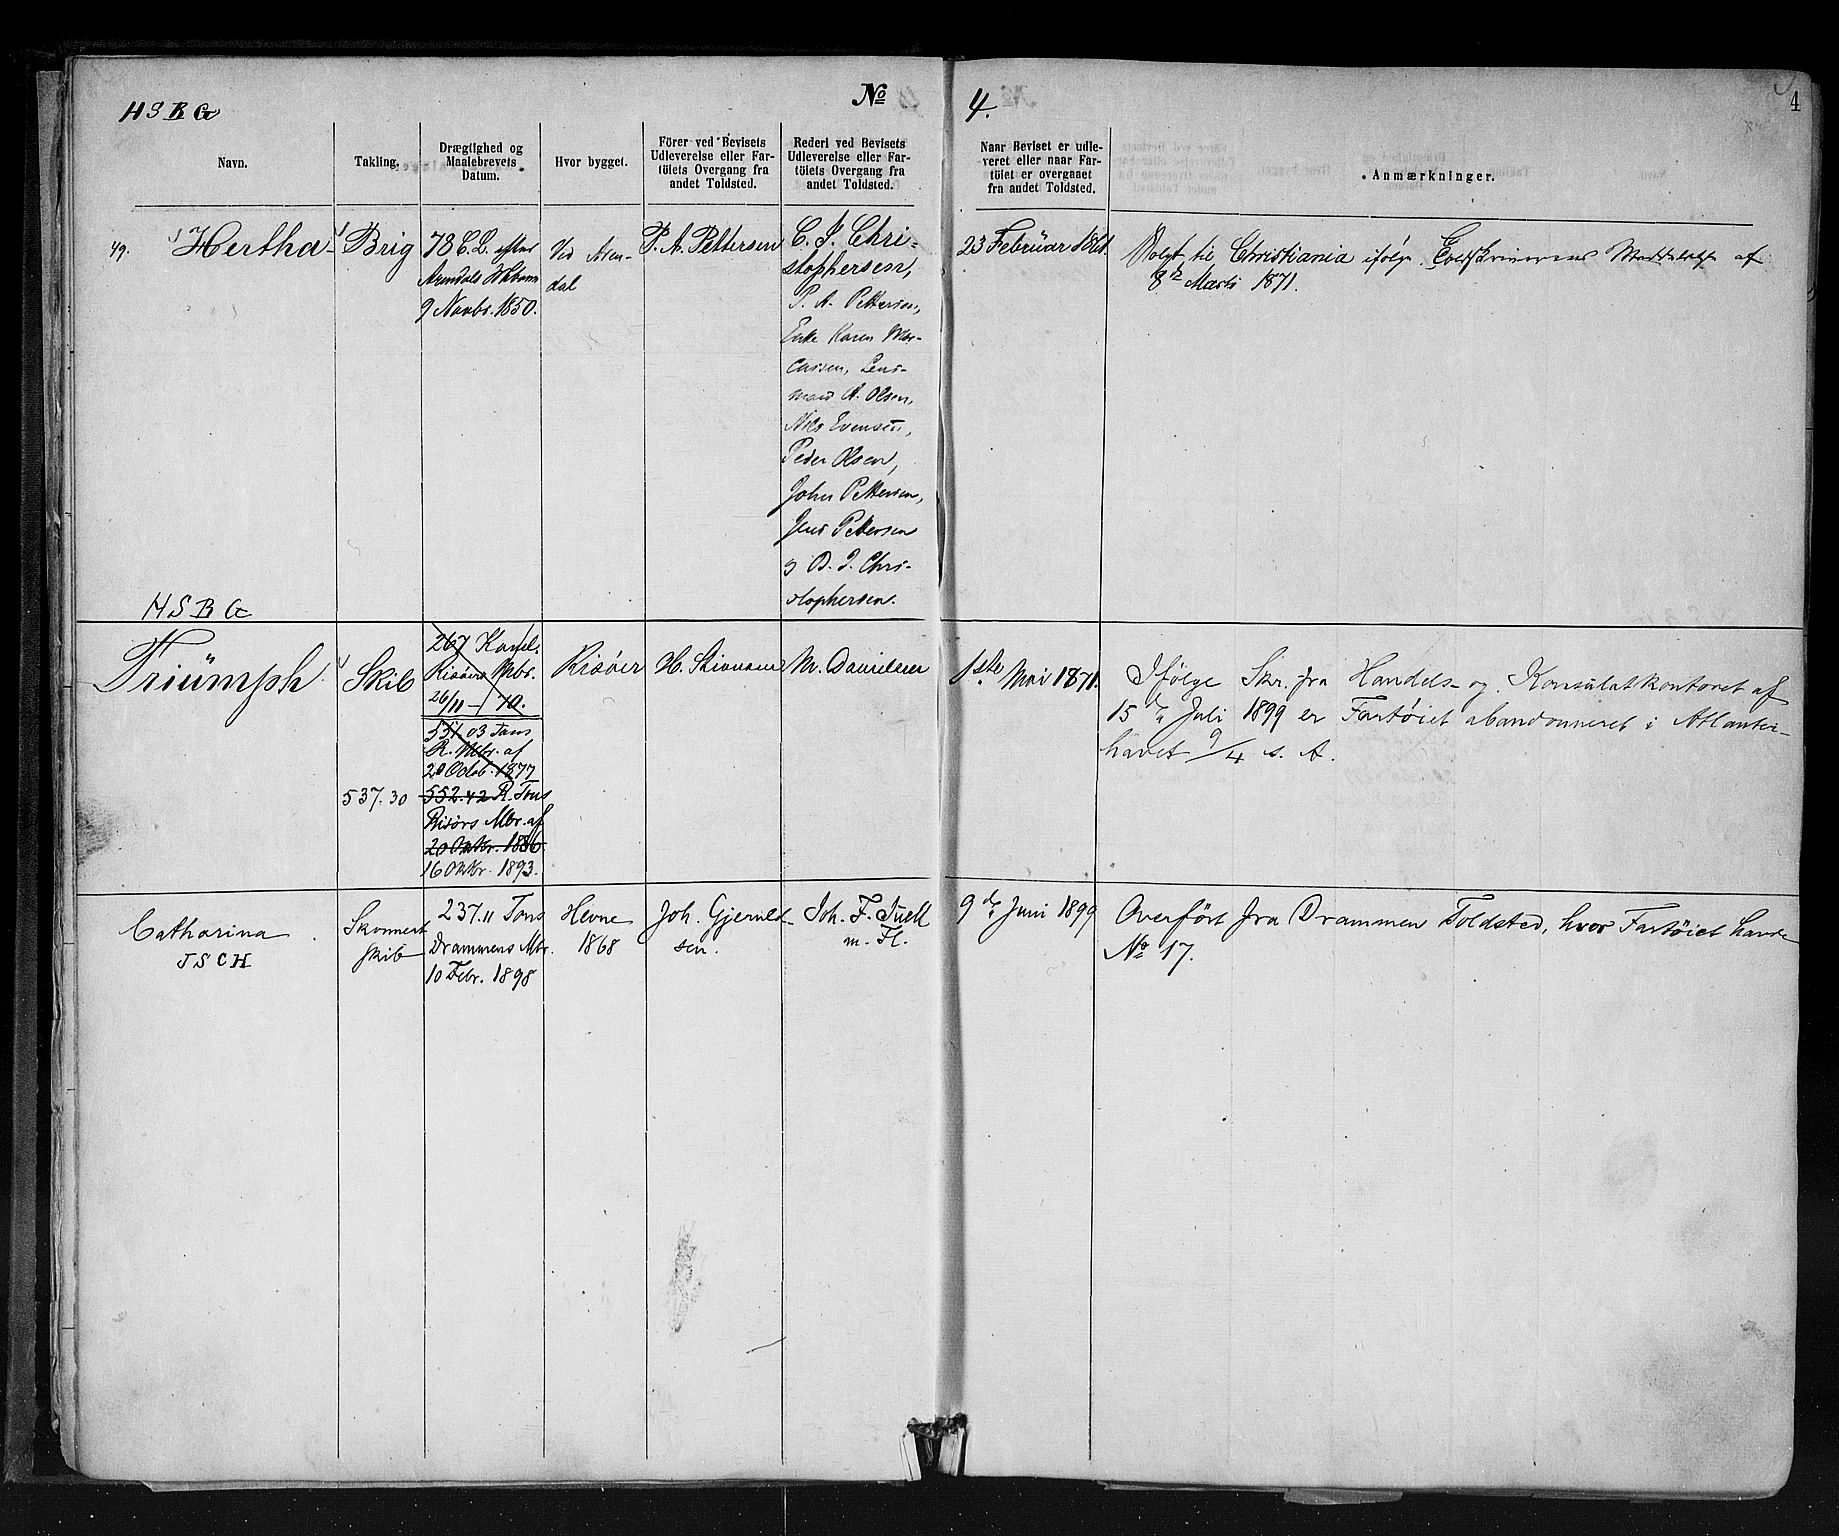 No 4.
4
HSBG
Navn.
Takling.
Drægtighed og
Maalebrevets
Datum.
Hvor bygget.
Förer ved Bevisets
Udleverelse eller Far-
töiets Overgang fra
andet Toldsted.
Rederi ved Bevisets
Udleverelse eller Far-
töiets Overgang fra
andet Toldsted.
Naar Beviset er udle-
veret eller naar Far-
töiet er overgaaet
fra andet Toldsted.
Anmærkninger.
49.
Hertha
HSBG
Brig
78 C.L. efter
Arendals
9 Novbr. 1850.
Ved Aren-
dal
P. A. Pettersen
C. J. Chri-
stophersen,
P. A. Pettersen,
Enke Karen Mar-
cussen, Lens-
mand A. Olsen,
Nils Evensen,
Peder Olsen,
John Pettersen,
Jens Pettersen
og Chri-
stophersen.
23 Februar
Solgt til Christiania ifølge Meddelelse af
8de Marts 1871.
Triümph
Skib
537.30
267
Risøers Mbr.
26/11 - 70.
551.03 Tons
R. Mbr. af
20 Octob. 1877
552.42 R. Tons
Risørs Mbr. af
20 Oktbr. 1886
16 Oktbr. 1893.
Risøer
H.
M. Danielsen
1ste Mai 1871.
Ifølge Skr. fra Handels- og Konsulatkontoret af
15de Juli 1899 er Fartøiet abandonneret i Atlanter-
havet 9/4 s. A.
Catharina
JSCH
Skonnert
skib
237.11 Tons
Drammens Mbr.
10 Febr. 1898
Hevne
1868
Joh. Gjeruld-
sen.
Joh. F. Juell
m. Fl.
9de Juni 1899
Overført fra Drammen Toldsted, hvor Fartøiet havde
No 17.